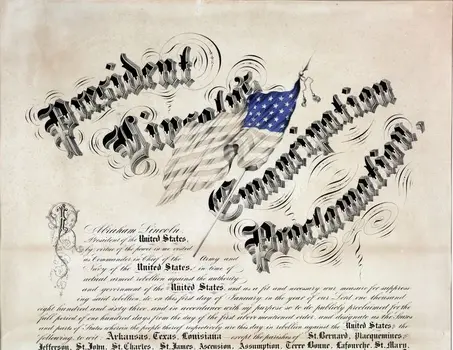 President
Lincoln's
Emancipation
Proclamation.
I, Abraham Lincoln
President of the United States,
by virtue of the power in me vested
as Commander in Chief of the Army and
Navy of the United States, in time of
actual armed rebellion against the authority
and government of the United States, and as a fit and necessary war measure for suppress
ing said rebellion, do on this first day of January, in the year of our Lord one thousand
eight hundred and sixty three, and in accordance with my purpose so to do publicly proclaimed for the
full period of one hundred days from the day of the first above mentioned order, and designate as the States
and parts of States wherein the people thereof respectively are this day in rebellion against the United States the
following, to wit: Arkansas, Texas, Louisiana except the parishes of St. Bernard, Plaquemines
Jefferson, St. John, St. Charles, St. James, Ascension, Assumption, Terre Bonne, Lafourche, St. Mary,